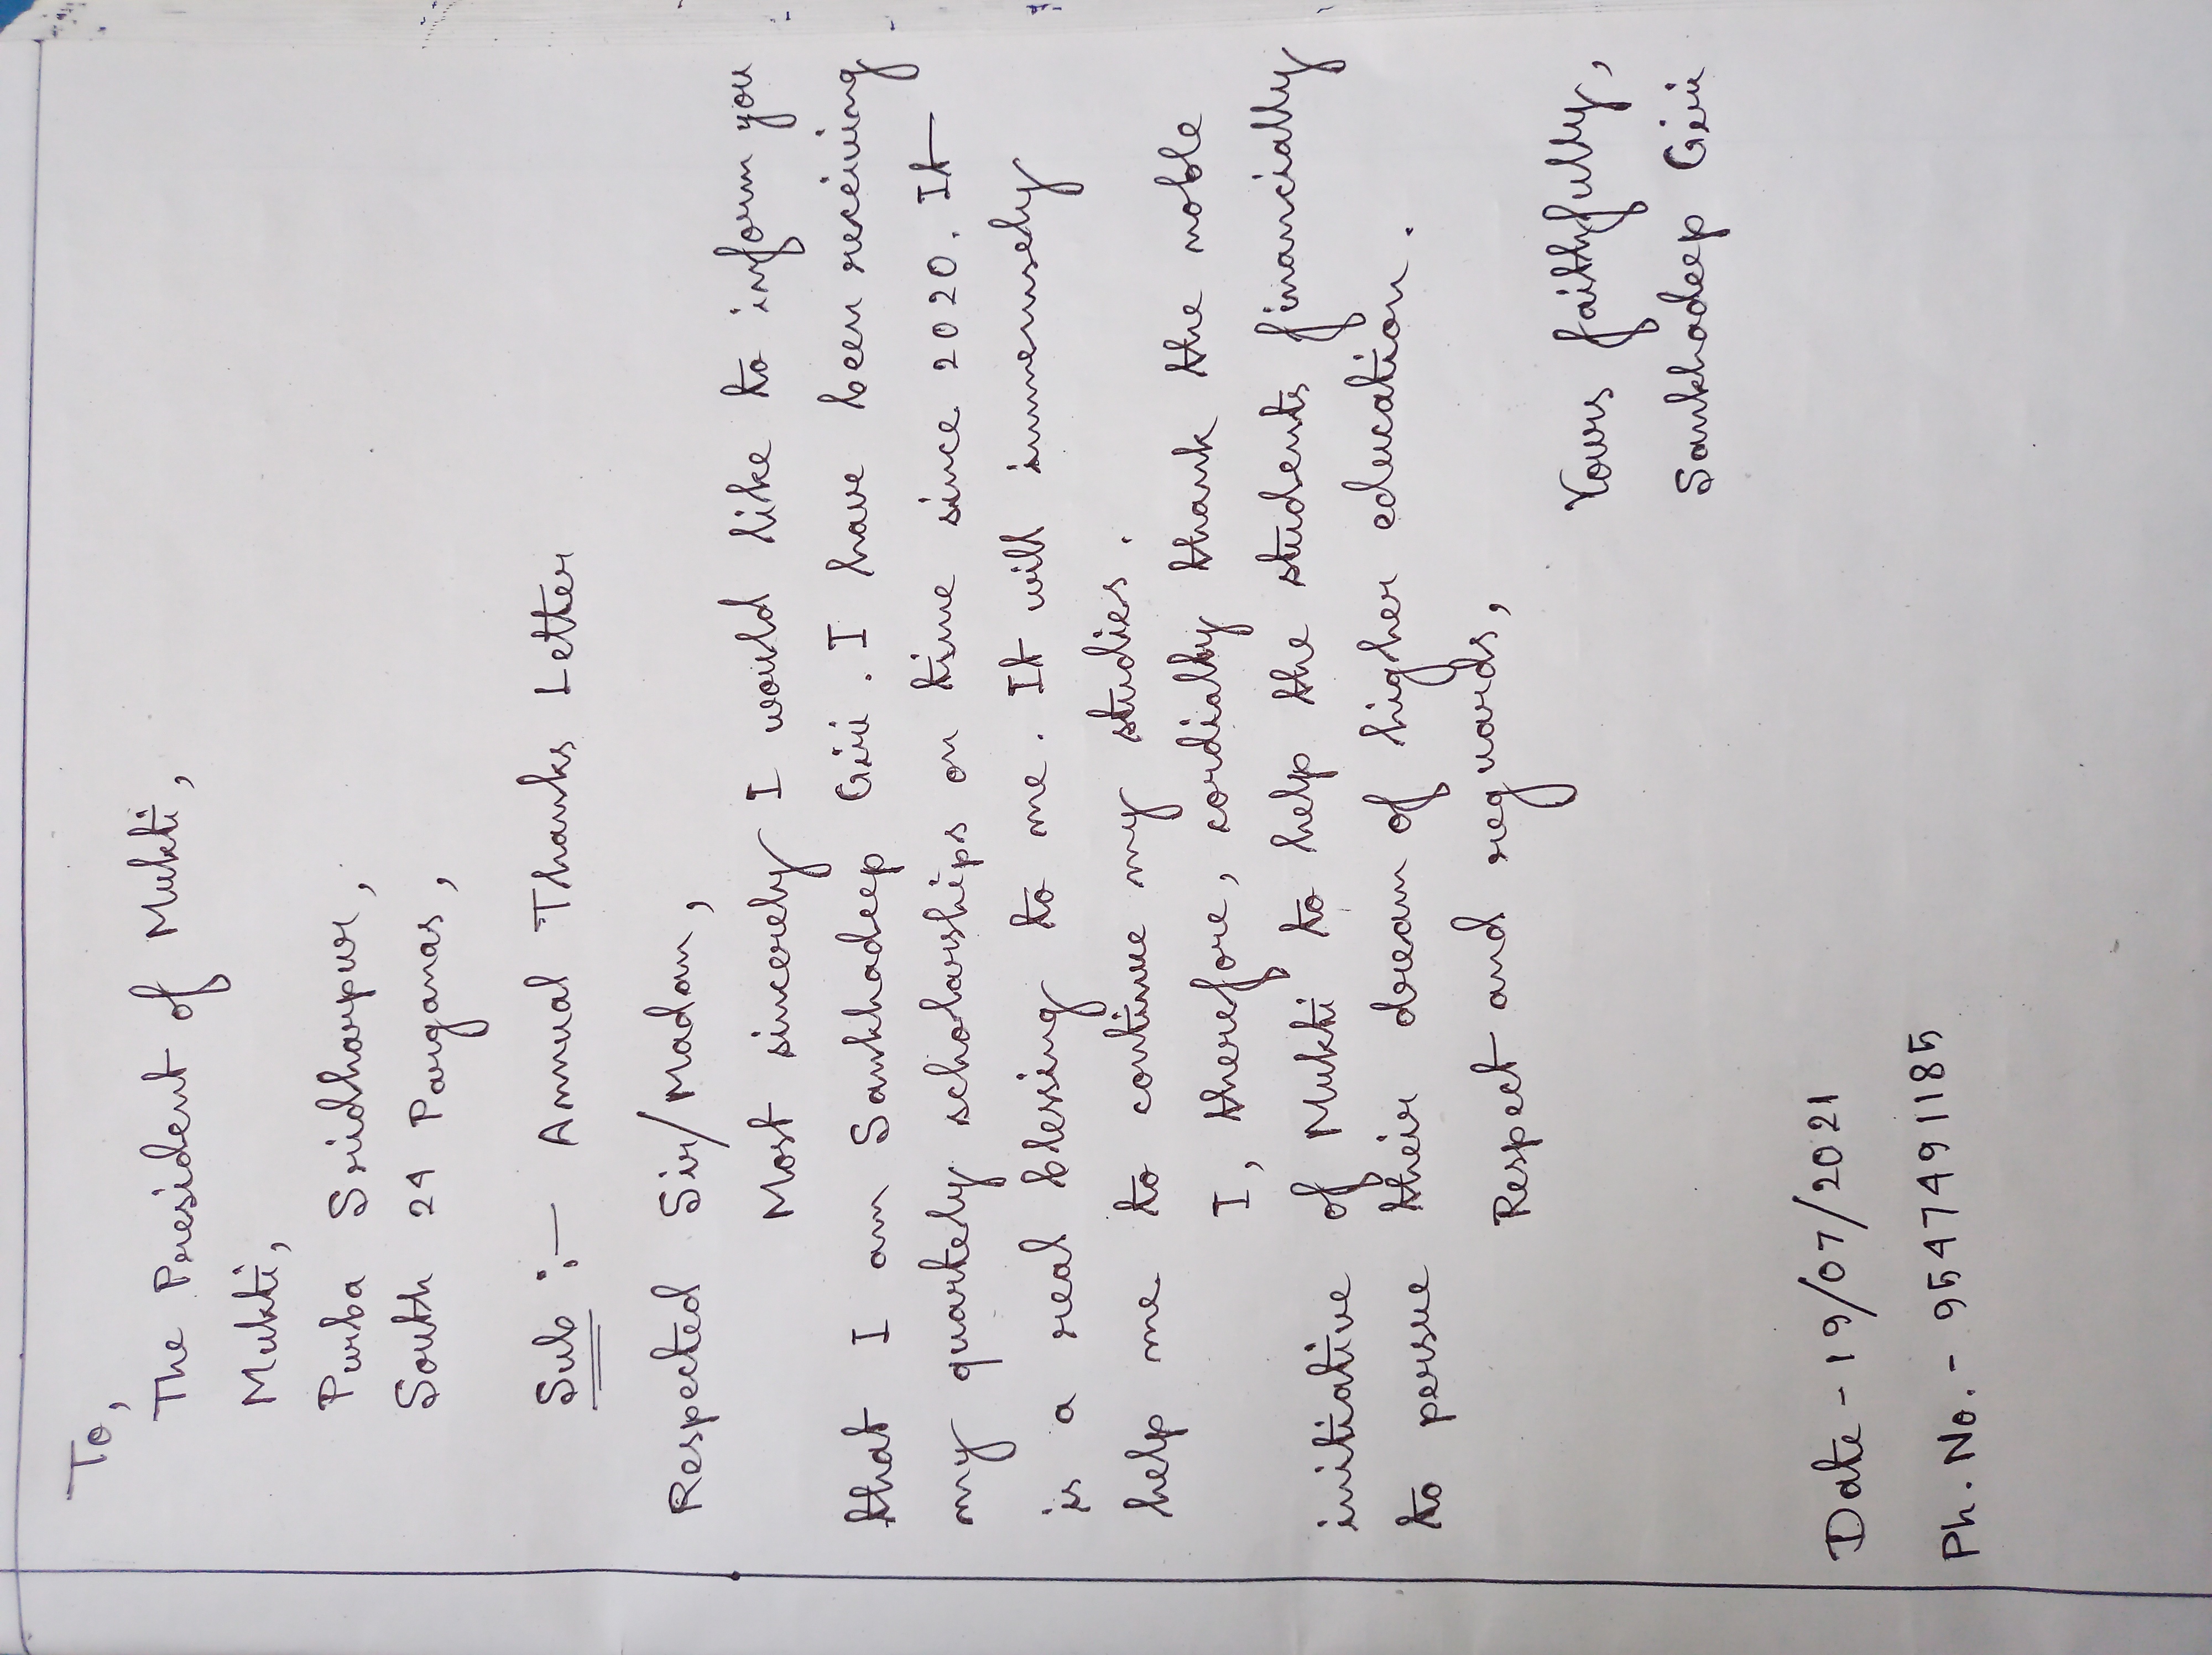 To,
The President of Mukti,
Mukti,
Purba Sridharpur,
South 24 Parganas,
Sub :- Annual Thanks Letter
Respected Sir/Madam,
Most sincerely I would like to inform you
that I am Sankhadeep Giri. I have been receiving
my quartely scholarships on time since 2020. It
is a real blessing to me. It will immensely
help me to continue my studies.
I, therefore, cordially thank the noble
initiative of Mukti to help the students financially
to persue their dream of higher education.
Respect and regards,
Yours faithfully,
Sankhadeep Giri
Date - 19/07/2021
Ph. No. - 9547491185